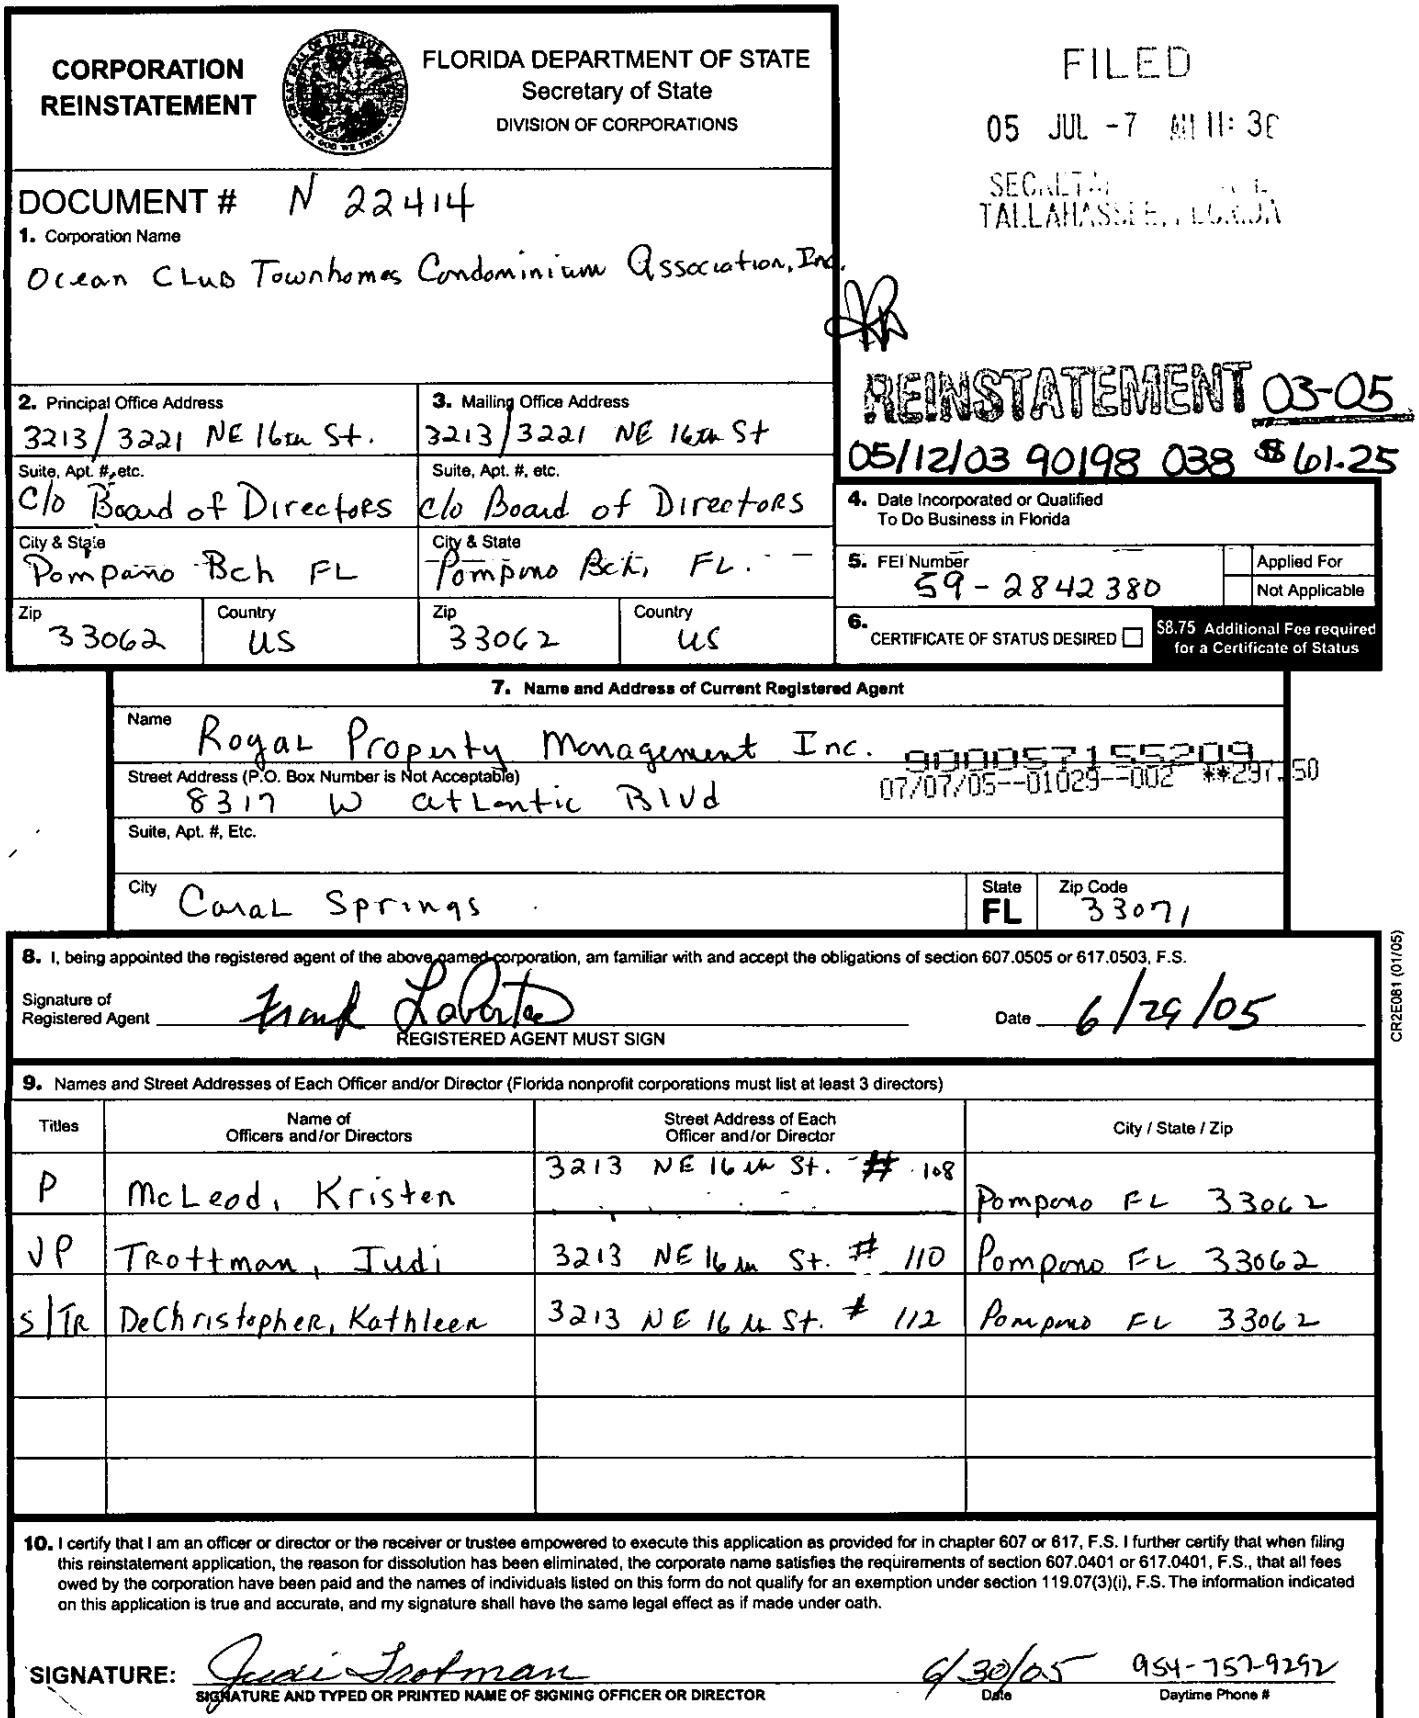 CORPORATION
REINSTATEMENT
FLORIDA DEPARTMENT OF STATE
Secretary of State
DIVISION OF CORPORATIONS
FILED
05 JUL -7 AM 11: 36
TALLAHASSEE, FLORIDA
DOCUMENT # N 22414
1. Corporation Name
Ocean Club Townhomes Condominium Association, Inc.
REINSTATEMENT 03-05
05/12/03 90198 038 $ 61.25
2. Principal Office Address
3213/3221 NE 16th St.
Suite, Apt. #, etc.
C/o Board of Directors
City & State
Pompano Bch FL
Zip
33062
Country
US
3. Mailing Office Address
3213/3221 NE 16th St
Suite, Apt. #, etc.
c/o Board of Directors
City & State
Pompano Bch, FL.
Zip
33062
Country
US
4. Date Incorporated or Qualified
To Do Business in Florida
5. FEI Number
59-2842380
Applied For
Not Applicable
6. CERTIFICATE OF STATUS DESIRED
$8.75 Additional Fee required
for a Certificate of Status
7. Name and Address of Current Registered Agent
Name
Royal Property Management Inc.
900057155209
07/07/05--01029--002 **297.50
Street Address (P.O. Box Number is Not Acceptable)
8317 W Atlantic Blvd
Suite, Apt. #, Etc.
City
Coral Springs
State
FL
Zip Code
33071
8. I, being appointed the registered agent of the above named corporation, am familiar with and accept the obligations of section 607.0505 or 617.0503, F.S.
Signature of
Registered Agent Frank
REGISTERED AGENT MUST SIGN
Date 6/29/05
CR2E081 (01/05)
9. Names and Street Addresses of Each Officer and/or Director (Florida nonprofit corporations must list at least 3 directors)
Titles
Name of
Officers and/or Directors
Street Address of Each
Officer and/or Director
City / State / Zip
P McLeod, Kristen 3213 NE 16th St. # 108 Pompano FL 33062
VP Trottman, Judi 3213 NE 16th St. # 110 Pompano FL 33062
S/TR DeChristopher, Kathleen 3213 NE 16th St. # 112 Pompano FL 33062
10. I certify that I am an officer or director or the receiver or trustee empowered to execute this application as provided for in chapter 607 or 617, F.S. I further certify that when filing
this reinstatement application, the reason for dissolution has been eliminated, the corporate name satisfies the requirements of section 607.0401 or 617.0401, F.S., that all fees
owed by the corporation have been paid and the names of individuals listed on this form do not qualify for an exemption under section 119.07(3)(i), F.S. The information indicated
on this application is true and accurate, and my signature shall have the same legal effect as if made under oath.
SIGNATURE: Judi Trotman 6/30/05 954-757-9292
SIGNATURE AND TYPED OR PRINTED NAME OF SIGNING OFFICER OR DIRECTOR
Date
Daytime Phone #